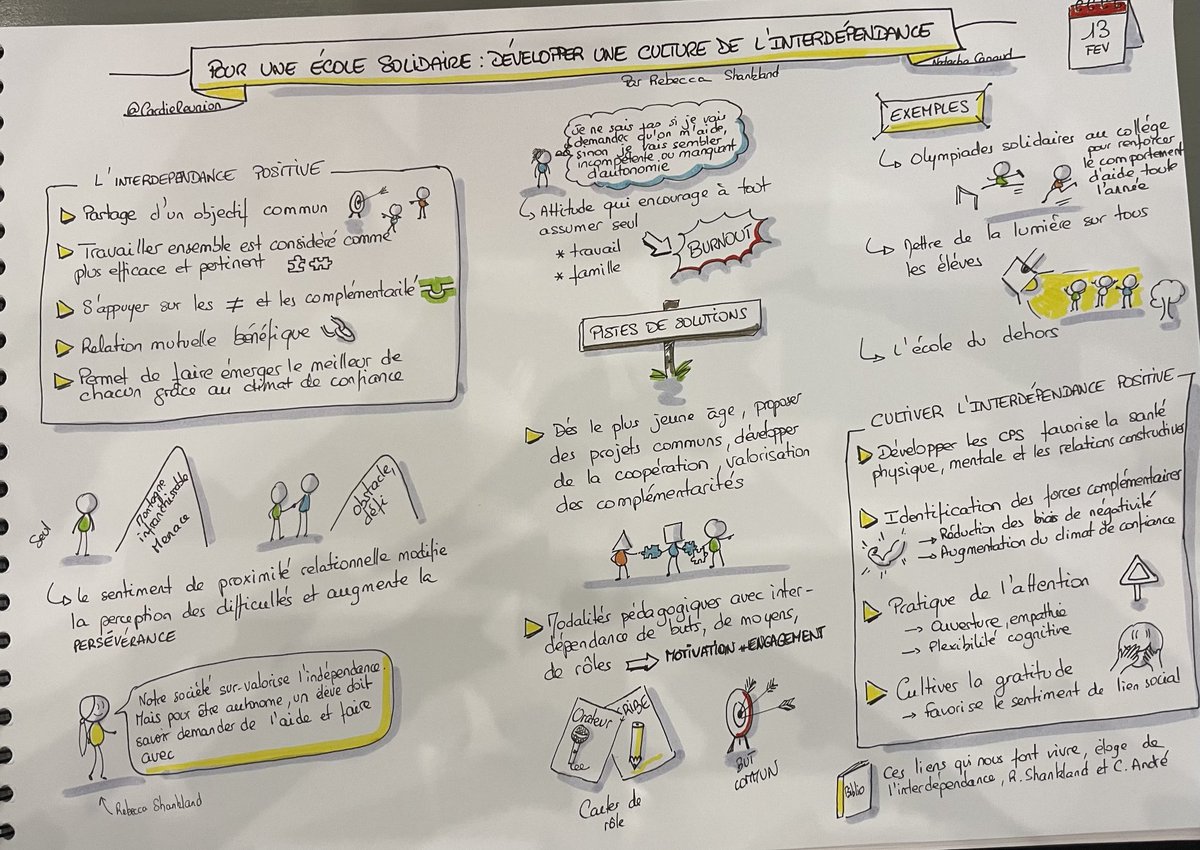 POUR UNE ÉCOLE SOLIDAIRE : DÉVELOPPER UNE CULTURE DE L'INTERDÉPENDANCE
Par Rebecca Shankland
@CardieReunion
Natacha
13
FEV
L'INTERDEPENDANCE POSITIVE
Partage d'un objectif commun
Travailler ensemble est considéré comme
plus efficace et pertinent
S'appuyer sur les ≠ et les complémentarité
Relation mutuelle bénéfique
Permet de faire émerger le meilleur de
chacun grâce au climat de confiance
Seul
Montagne
infranchissable
Menace
Obstacle,
défi
Le sentiment de proximité relationnelle modifie
la perception des difficultés et augmente la
PERSÉVÉRANCE
Notre société sur-valorise l'indépendance.
Mais pour être autonome, un élève doit
savoir demander de l'aide et faire
avec
Rebecca Shankland
Je ne sais pas si je vais
demander qu'on m'aide,
sinon je vais sembler
incompétente ou manquant
d'autonomie
Attitude qui encourage à tout
assumer seul
* travail
* famille
BURNOUT
PISTES DE SOLUTIONS
Dès le plus jeune âge, proposer
des projets communs, développer
de la coopération, valorisation
des complémentarités
Modalités pédagogiques avec inter-
dépendance de buts, de moyens,
de rôles ⇒ MOTIVATION + ENGAGEMENT
Orateur
SCRIBE
Cartes de
rôle
BUT
COMMUN
EXEMPLES
Olympiades solidaires au collège
pour renforcer
le comportement
d'aide, toute
l'année
Mettre de la lumière sur tous
les élèves
L'école du dehors
CULTIVER L'INTERDÉPENDANCE POSITIVE
Développer les CPS favorise la santé
physique, mentale et les relations constructives
Identification des forces complémentaires
→ Réduction des biais de négativité
→ Augmentation du climat de confiance
Pratique de l'attention
→ Ouverture, empathie
→ Flexibilité cognitive
Cultiver la gratitude
→ favorise le sentiment de lien social
Biblio
Ces liens qui nous font vivre, éloge de
l'interdépendance, R. Shankland et C. André